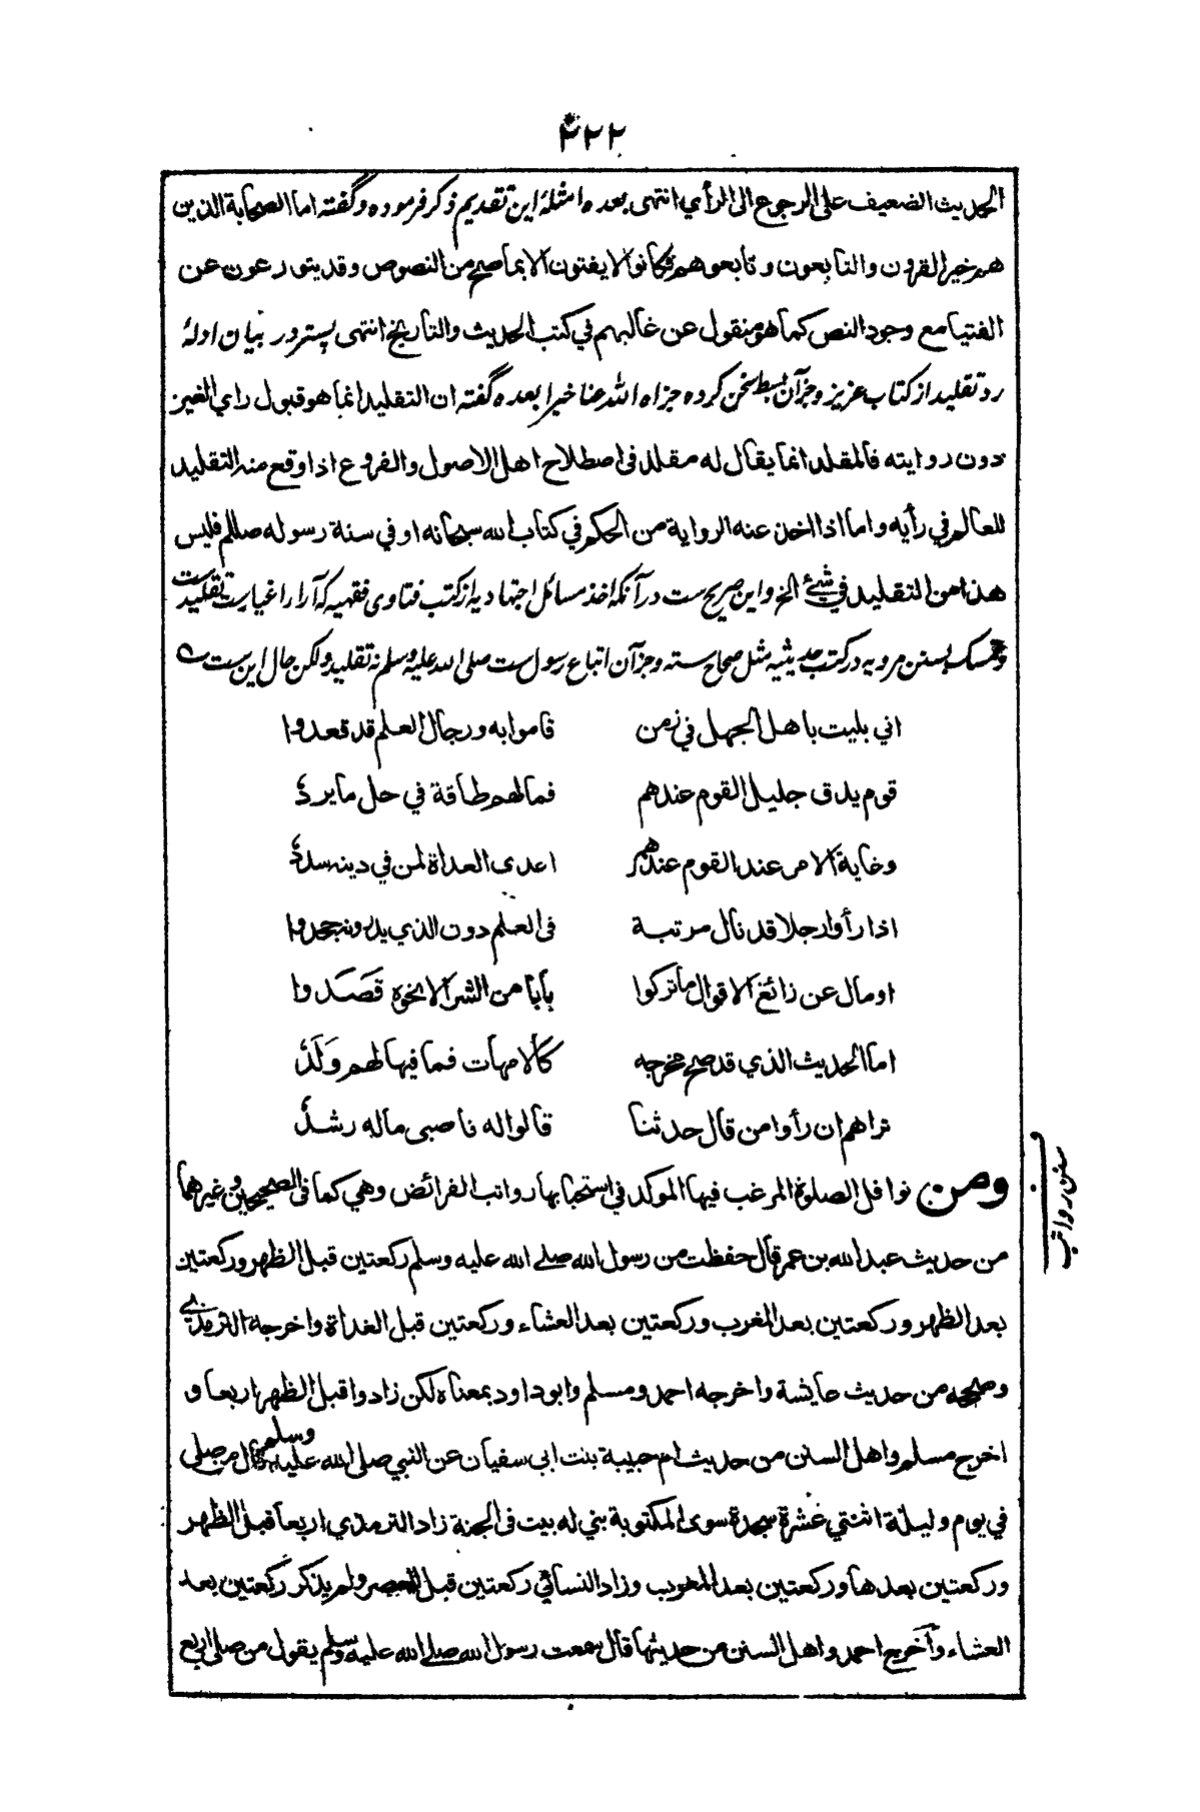 ۴۲۲
الحديث الضعيف على الرجوع الى الرأي انتهى بعده امثلهٔ اين تقديم ذكر فرموده وگفته اما الصحابة الذين
هم خير القرون والتابعون وتابعوهم فكانوا لا يفتون الا بما صح من النصوص وقد يتورعون عن
الفتيا مع وجود النص كما هو منقول عن غالبهم في كتب الحديث والتاريخ انتهى پستر در بيان ادلهٔ
رد تقليد از كتاب عزيز وجز آن بسط سخن كرده جزاه الله عنا خيرا بعده گفته ان التقليد انما هو قبول راي الغير
دون روايته فالمقلد انما يقال له مقلد فى اصطلاح اهل الاصول والفروع اذا وقع منه التقليد
للعالم في رأيه واما اذا اخذ عنه الرواية من الحكم في كتاب الله سبحانه او في سنة رسوله صللم فليس
هذا من التقليد في شيئ الخ واين صريح ست در آنكه اخذ مسائل اجتهاديه از كتب فتاوى فقهيه كه آراء اغيارست تقليدست
وتمسك بسنن مرويه در كتب حديثيه مثل صحاح سته وجز آن اتباع رسول ست صلى الله عليه وسلم نه تقليد ولكن حال اين ست ے
اني بليت باهل الجهل في زمن قاموا به ورجال العلم قد قعدوا
قوم يدق جليل القوم عندهم فما لهم طاقة في حل ما يرد
وغاية الامر عند القوم عندهم اعدى العداة لمن في دينه سدد
اذا رأوا رجلا قد نال مرتبة فى العلم دون الذي يدرونه جحدوا
او مال عن زائغ الاقوال ما تركوا بابا من الشر الا نحوه قَصَدوا
اما الحديث الذي قد صح مخرجه كالامهات فما فيها لهم وَلَدُ
تراهم ان رأوا من قال حدثنا قالوا له ناصبى ماله رشد
ومن نوافل الصلوة المرغب فيها المؤكد في استحبابها رواتب الفرائض وهي كما فى الصحيحين وغيرهما
سنن رواتب
من حديث عبد الله بن عمر قال حفظت من رسول الله صلے الله عليه وسلم ركعتين قبل الظهر وركعتين
بعد الظهر وركعتين بعد المغرب وركعتين بعد العشاء وركعتين قبل الغداة واخرجه الترمذي
وصححه من حديث عايشة واخرجه احمد ومسلم وابو داود بمعناه لكن زادوا قبل الظهر اربعا و
اخرج مسلم واهل السنن من حديث ام حبيبة بنت ابى سفيان عن النبي صلى الله عليه وسلم قال من صلى
في يوم وليلة اثنتي عشرة سجدة سوى المكتوبة بني له بيت فى الجنة زاد الترمذي اربعا قبل الظهر
وركعتين بعدها وركعتين بعد المغرب وزاد النسائي ركعتين قبل العصر ولم يذكر ركعتين بعد
العشاء وأخرج احمد واهل السنن من حديثها قال سمعت رسول الله صلے الله عليه وسلم يقول من صلى اربع